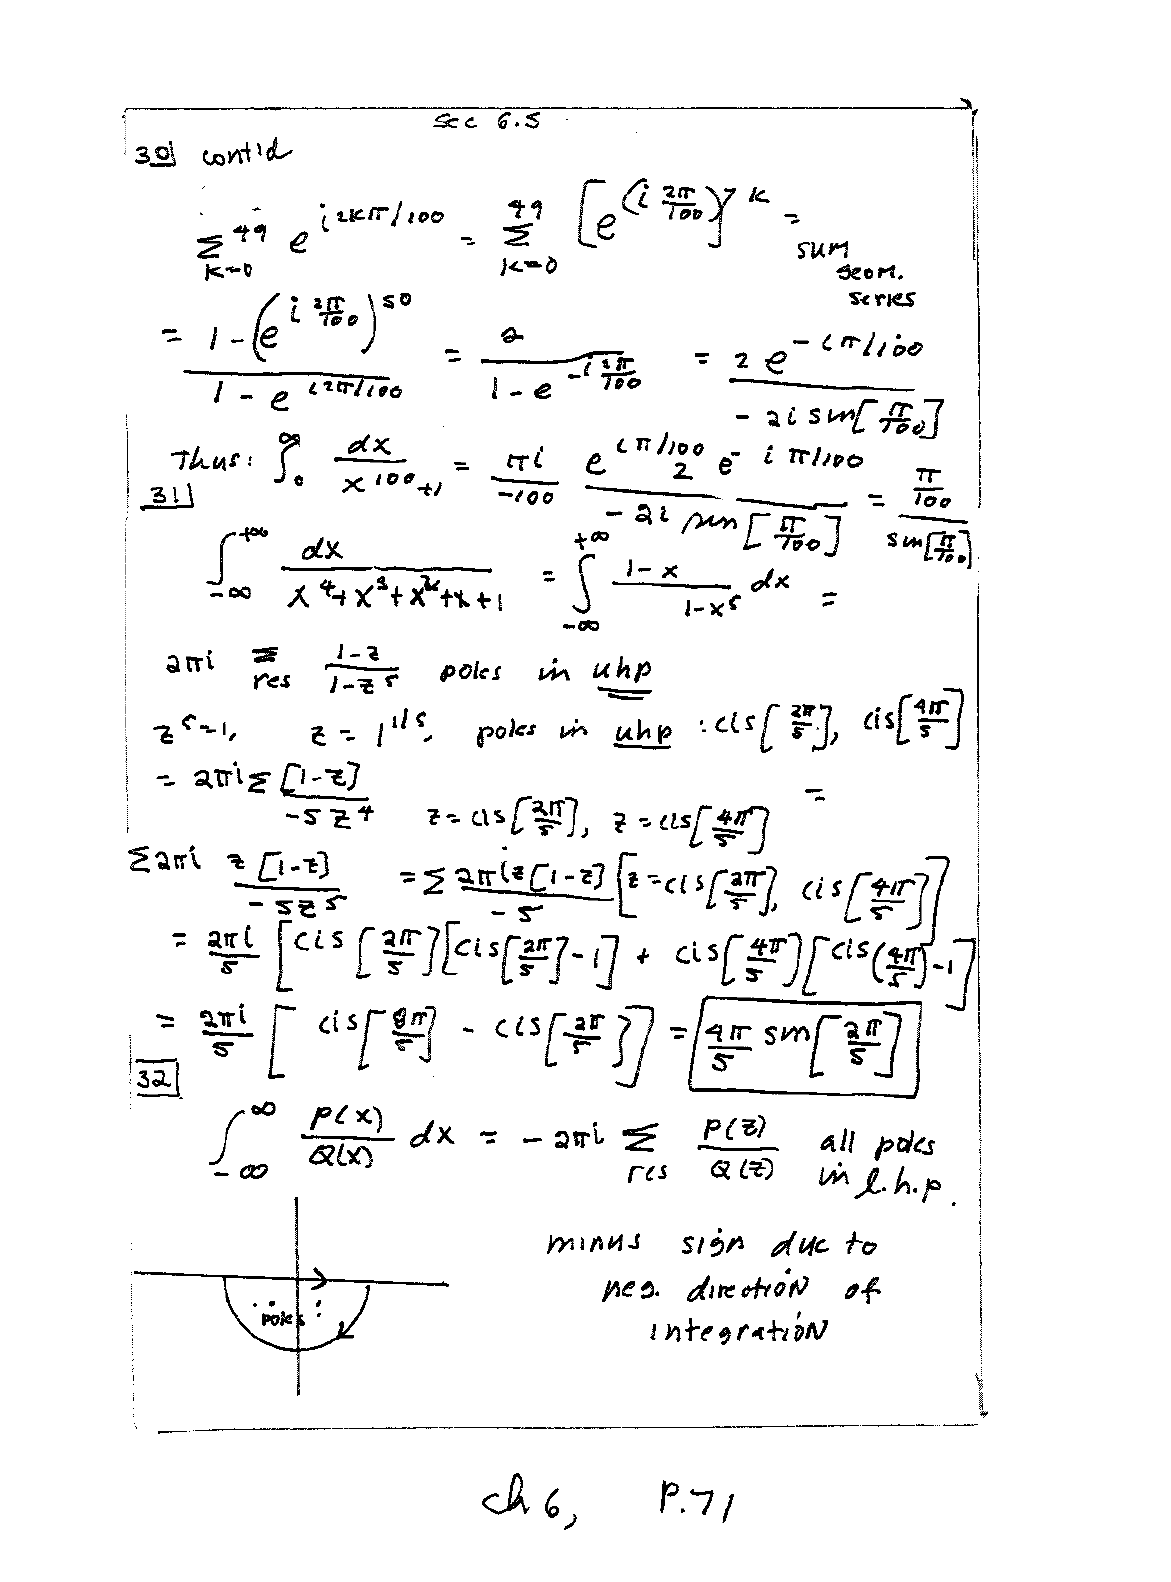 Sec 6.5
30 cont'd
Σ_{k=0}^{49} e^{i2kπ/100} = Σ_{k=0}^{49} [e^{(i 2π/100)}]^k =
sum
geom.
series
= 1-(e^{i 2π/100})^{50} / 1 - e^{i2π/100} = 2 / 1 - e^{-i 2π/100} = 2 e^{-iπ/100} / -2i sin[π/100]
Thus: ∫_0^∞ dx / x^{100}+1 = πi / -100 e^{iπ/100} 2 e^{-iπ/100} / -2i sin[π/100] = π/100 / sin[π/100]
31
∫_{-∞}^{+∞} dx / x^4+x^3+x^2+x+1 = ∫_{-∞}^{+∞} 1-x / 1-x^5 dx =
2πi Σ res 1-z / 1-z^5 poles in uhp
z^5=1, z = 1^{1/5}, poles in uhp : cis[2π/5], cis[4π/5]
= 2πi Σ [1-z] / -5z^4 z = cis[2π/5], z = cis[4π/5] =
Σ 2πi z[1-z] / -5z^5 = Σ 2πi z[1-z] / -5 [z = cis[2π/5], cis[4π/5]]
= 2πi/5 [cis[2π/5][cis[2π/5]-1] + cis[4π/5][cis(4π/5)-1]
= 2πi/5 [cis[8π/5] - cis[2π/5]] = 4π/5 sin[2π/5]
32
∫_{-∞}^{∞} P(x)/Q(x) dx = - 2πi Σ res P(z)/Q(z) all poles in l.h.p.
minus sign due to
neg. direction of
poles
integration
ch 6, P.71